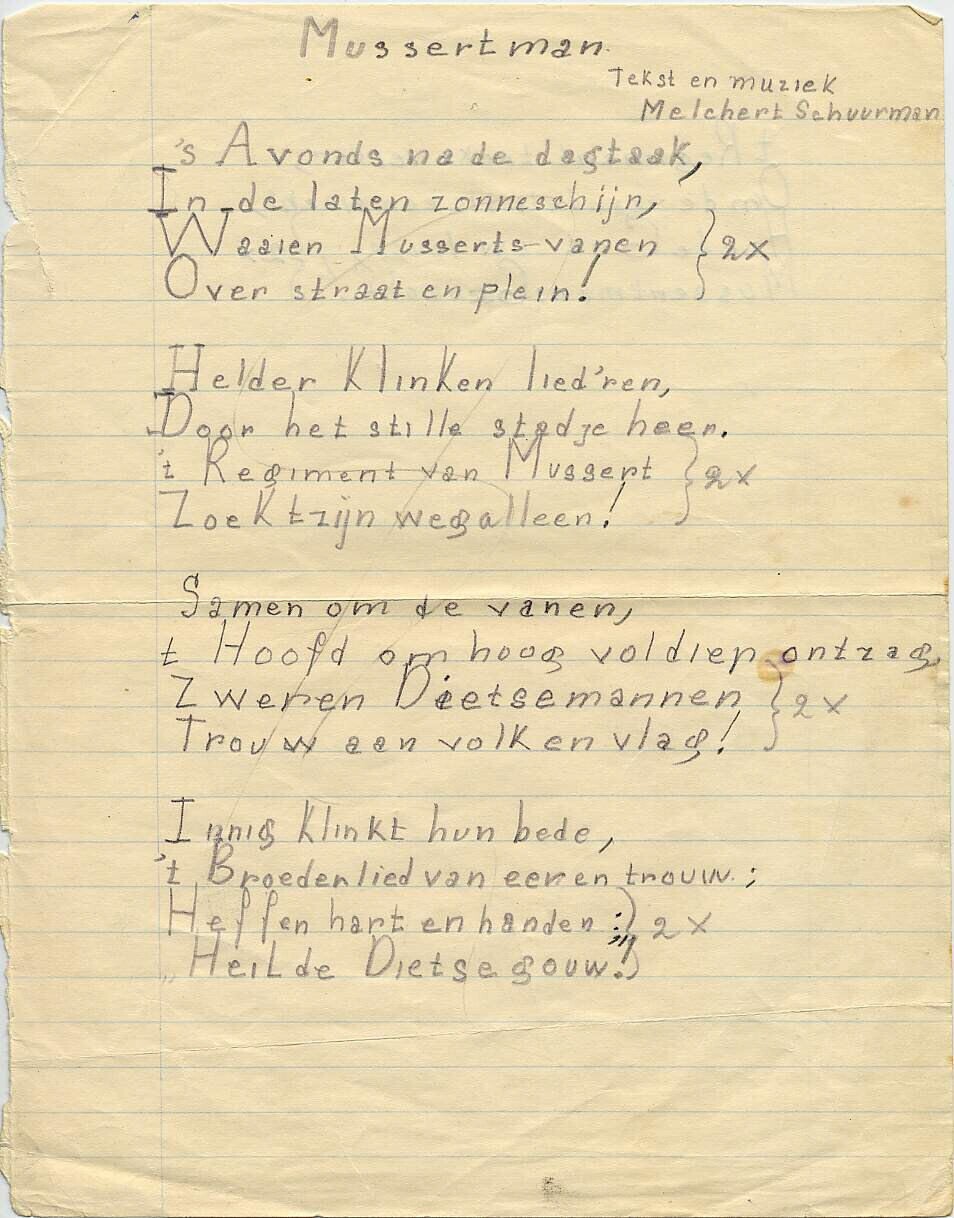 Mussertman.
Tekst en muziek
Melchert Schuurman
's Avonds na de dagtaak,
In de laten zonneschijn,
Waaien Musserts-vanen } 2x
Over straat en plein!
Helder klinken lied'ren,
Door het stille stadje heen.
't Regiment van Mussert } 2x
Zoekt zijn weg alleen!
Samen om de vanen,
t Hoofd om hoog vol diep ontzag,
Zweren Dietsemannen } 2x
Trouw aan volk en vlag!
Innig klinkt hun bede,
't Broederlied van eer en trouw.;
Heffen hart en handen:) 2x
„Heil de Dietse gouw!”